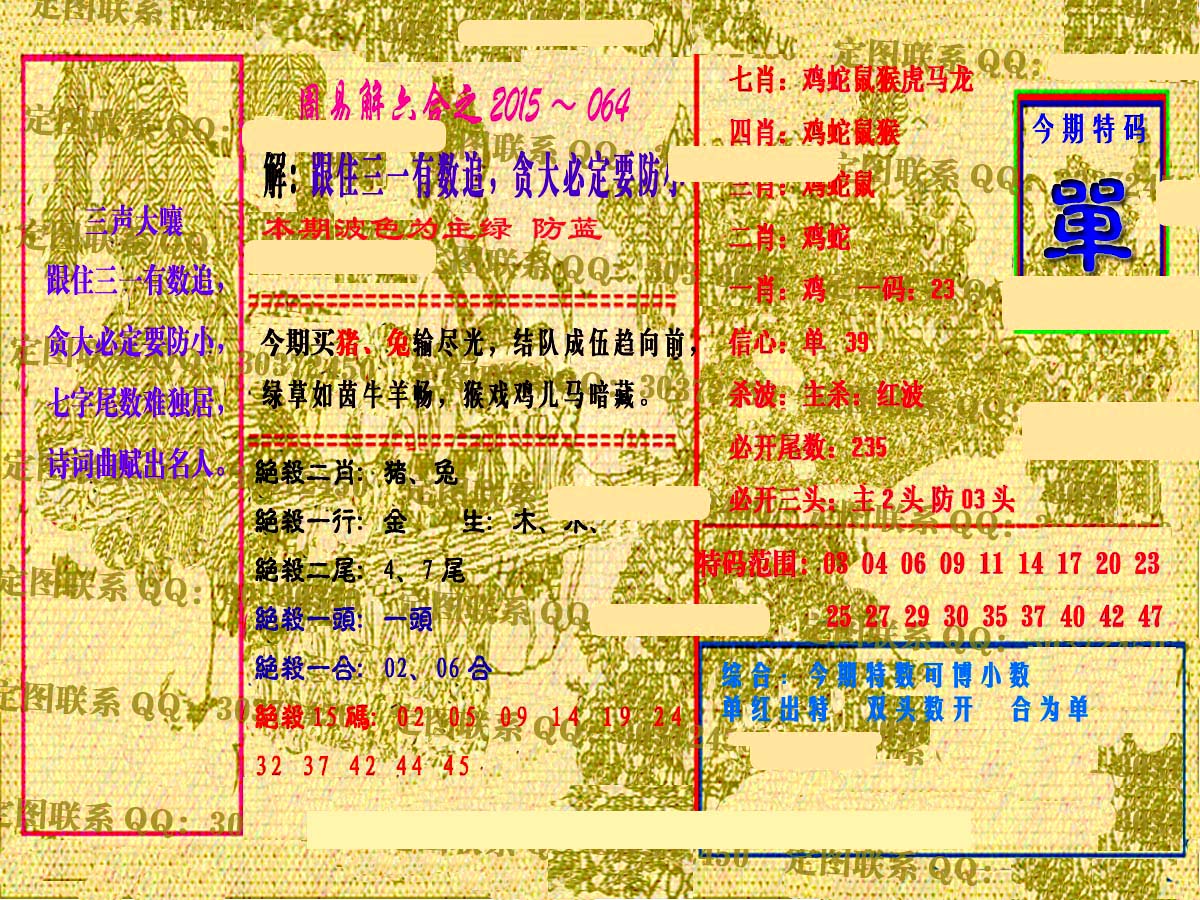 三声大嚷
跟住三一有数追，
贪大必定要防小，
七字尾数难独居，
诗词曲赋出名人。
周易解六合之2015～064
解：跟住三一有数追，贪大必定要防小
本期波色为主绿 防蓝
今期买猪、兔输尽光，结队成伍趋向前，
绿草如茵牛羊畅，猴戏鸡儿马暗藏。
絕殺二肖：猪、兔
絕殺一行：金 生：木、水、
絕殺二尾：4、7尾
絕殺一頭：一頭
絕殺一合：02、06合
絕殺15碼：02 05 09 14 19 24
32 37 42 44 45
七肖：鸡蛇鼠猴虎马龙
四肖：鸡蛇鼠猴
三肖：鸡蛇鼠
二肖：鸡蛇
一肖：鸡 一码：23
信心：单 39
杀波：主杀：红波
必开尾数：235
必开三头：主2头防03头
今期特码
單
特码范围：03 04 06 09 11 14 17 20 23
25 27 29 30 35 37 40 42 47
综合：今期特数可博小数
单红出特 双头数开 合为单
定图联系QQ：